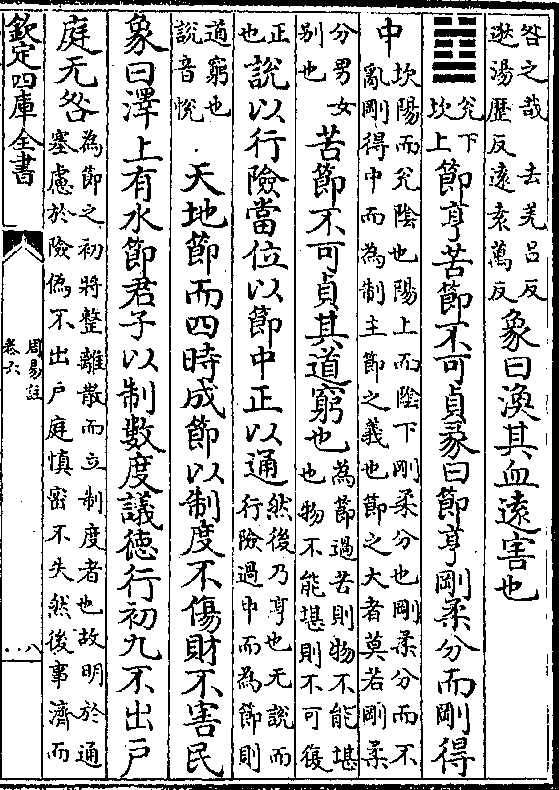 咎之哉 去羌呂反
逖湯歷反遠袁萬反 象曰渙其血遠害也
兌下
坎上 節亨苦節不可貞彖曰節亨剛柔分而剛得
中 坎陽而兌陰也陽上而陰下剛柔分也剛柔分而不
亂剛得中而為制主節之義也節之大者莫若剛柔
分男女
别也 苦節不可貞其道窮也 為節過苦則物不能堪
也物不能堪則不可復
正
也 說以行險當位以節中正以通 然後乃亨也无說而
行險過中而為節則
道窮也
說音悅 天地節而四時成節以制度不傷財不害民
象曰澤上有水節君子以制數度議徳行初九不出戶
庭无咎 為節之初將整離散而立制度者也故明於通
塞慮於險偽不出戶庭慎密不失然後事濟而
欽定四庫全書
周易註
卷六
八